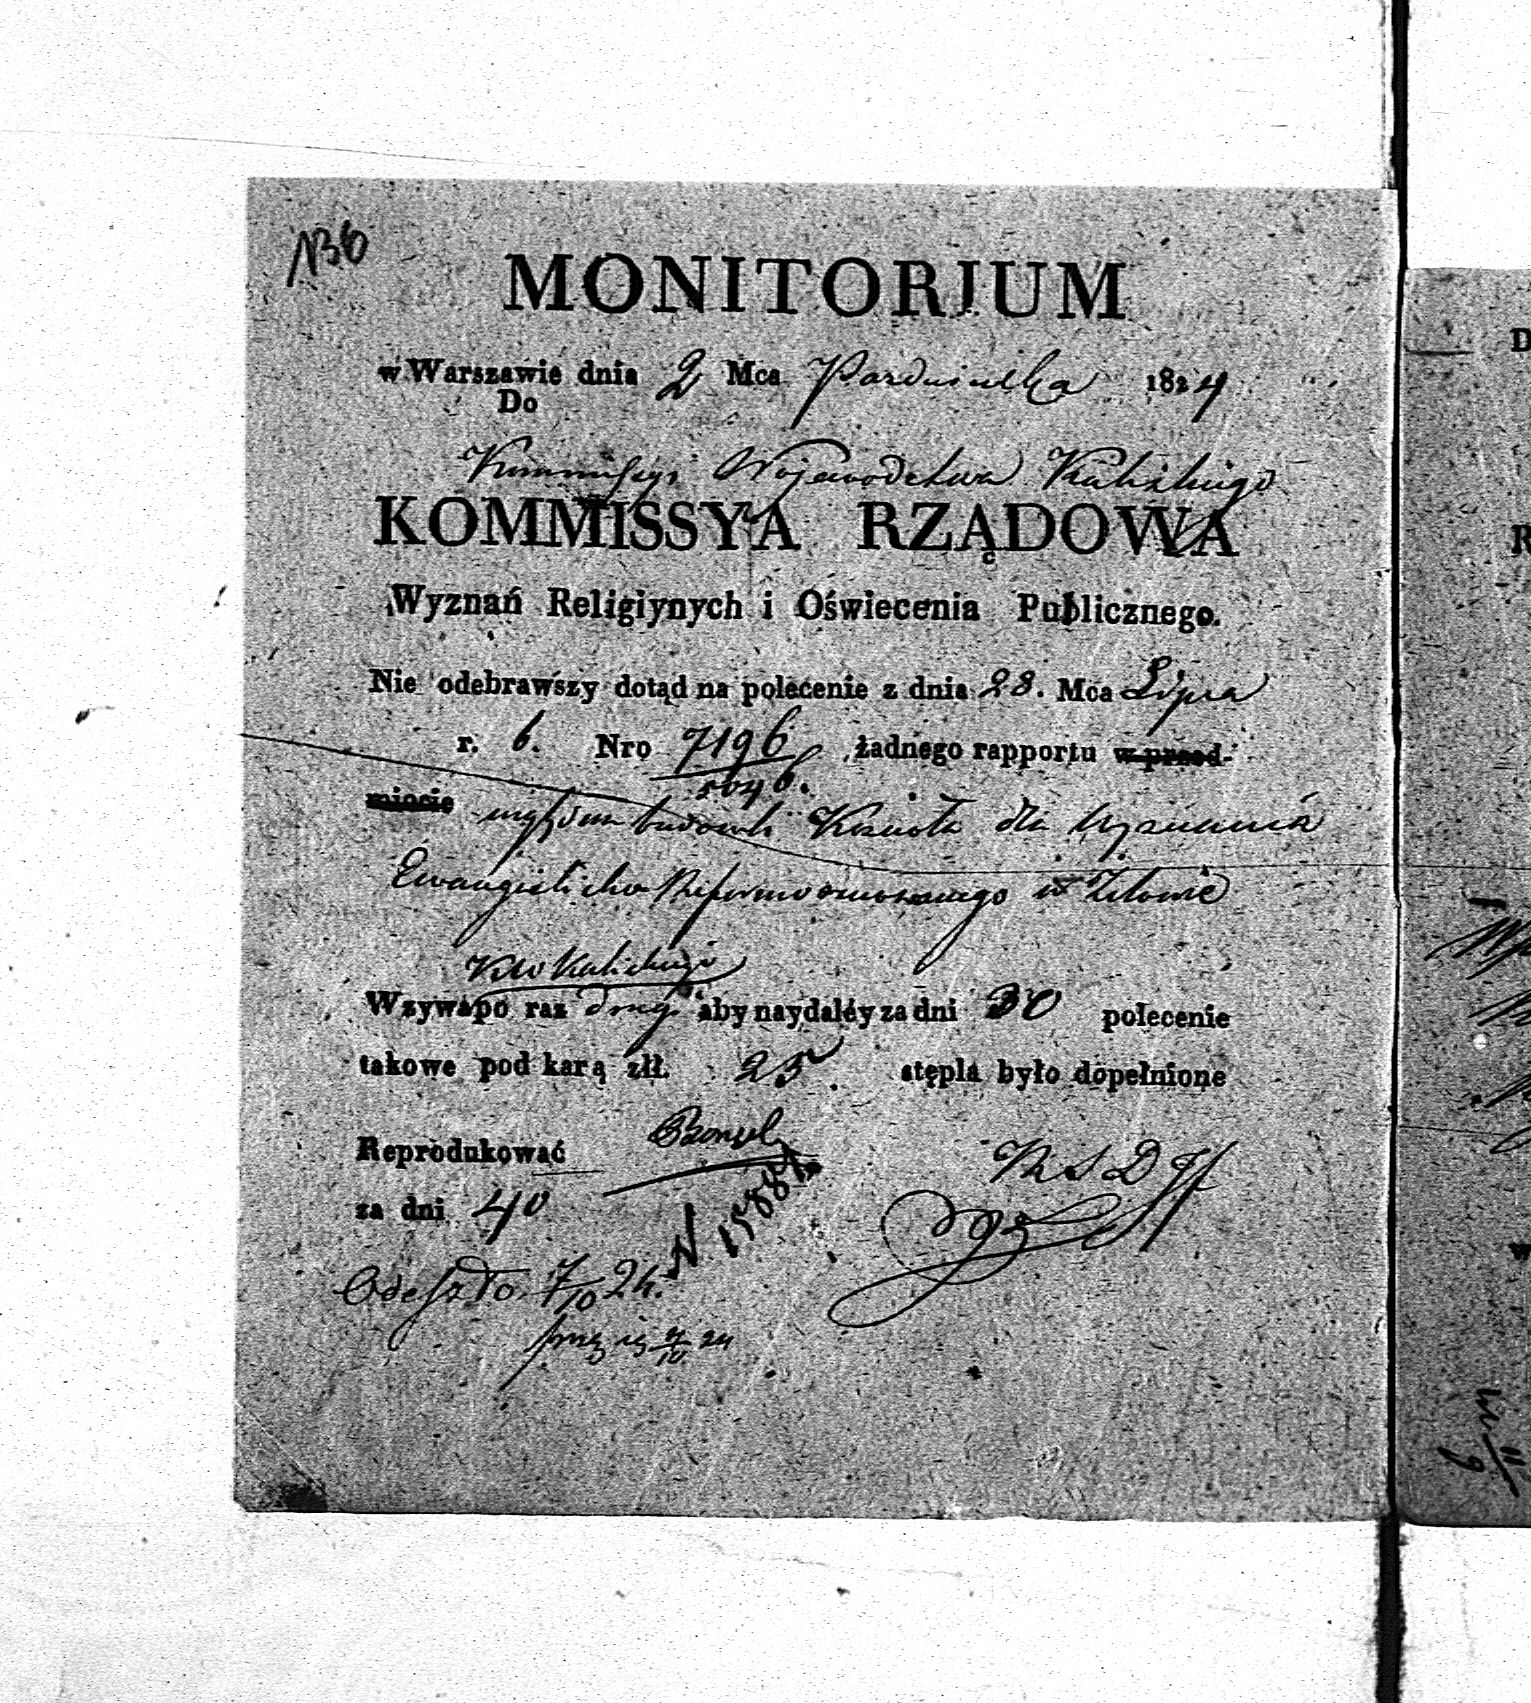 136
MONITORIUM
w Warszawie dnia 2 Mca Października 1824
Do
Kommissyi Województwa Kaliskiego
KOMMISSYA RZĄDOWA
Wyznań Religiynych i Oświecenia Publicznego.
Nie odebrawszy dotąd na polecenie z dnia 28. Mca Lipca
r. b. Nro 7196 żadnego rapportu w przed-
miocie względem budowli Kościoła dla Wyznania
Ewangelicko Reformowanego w Zelowie
Wztwie Kaliskiego
Wzywa po raz drugi aby naydaléy za dni 30 polecenie
takowe pod karą złł. 25. stępla było dopełnione
Reprodukować
za dni 40
N 15884
KSDJ
Odeszło 7/10 24.